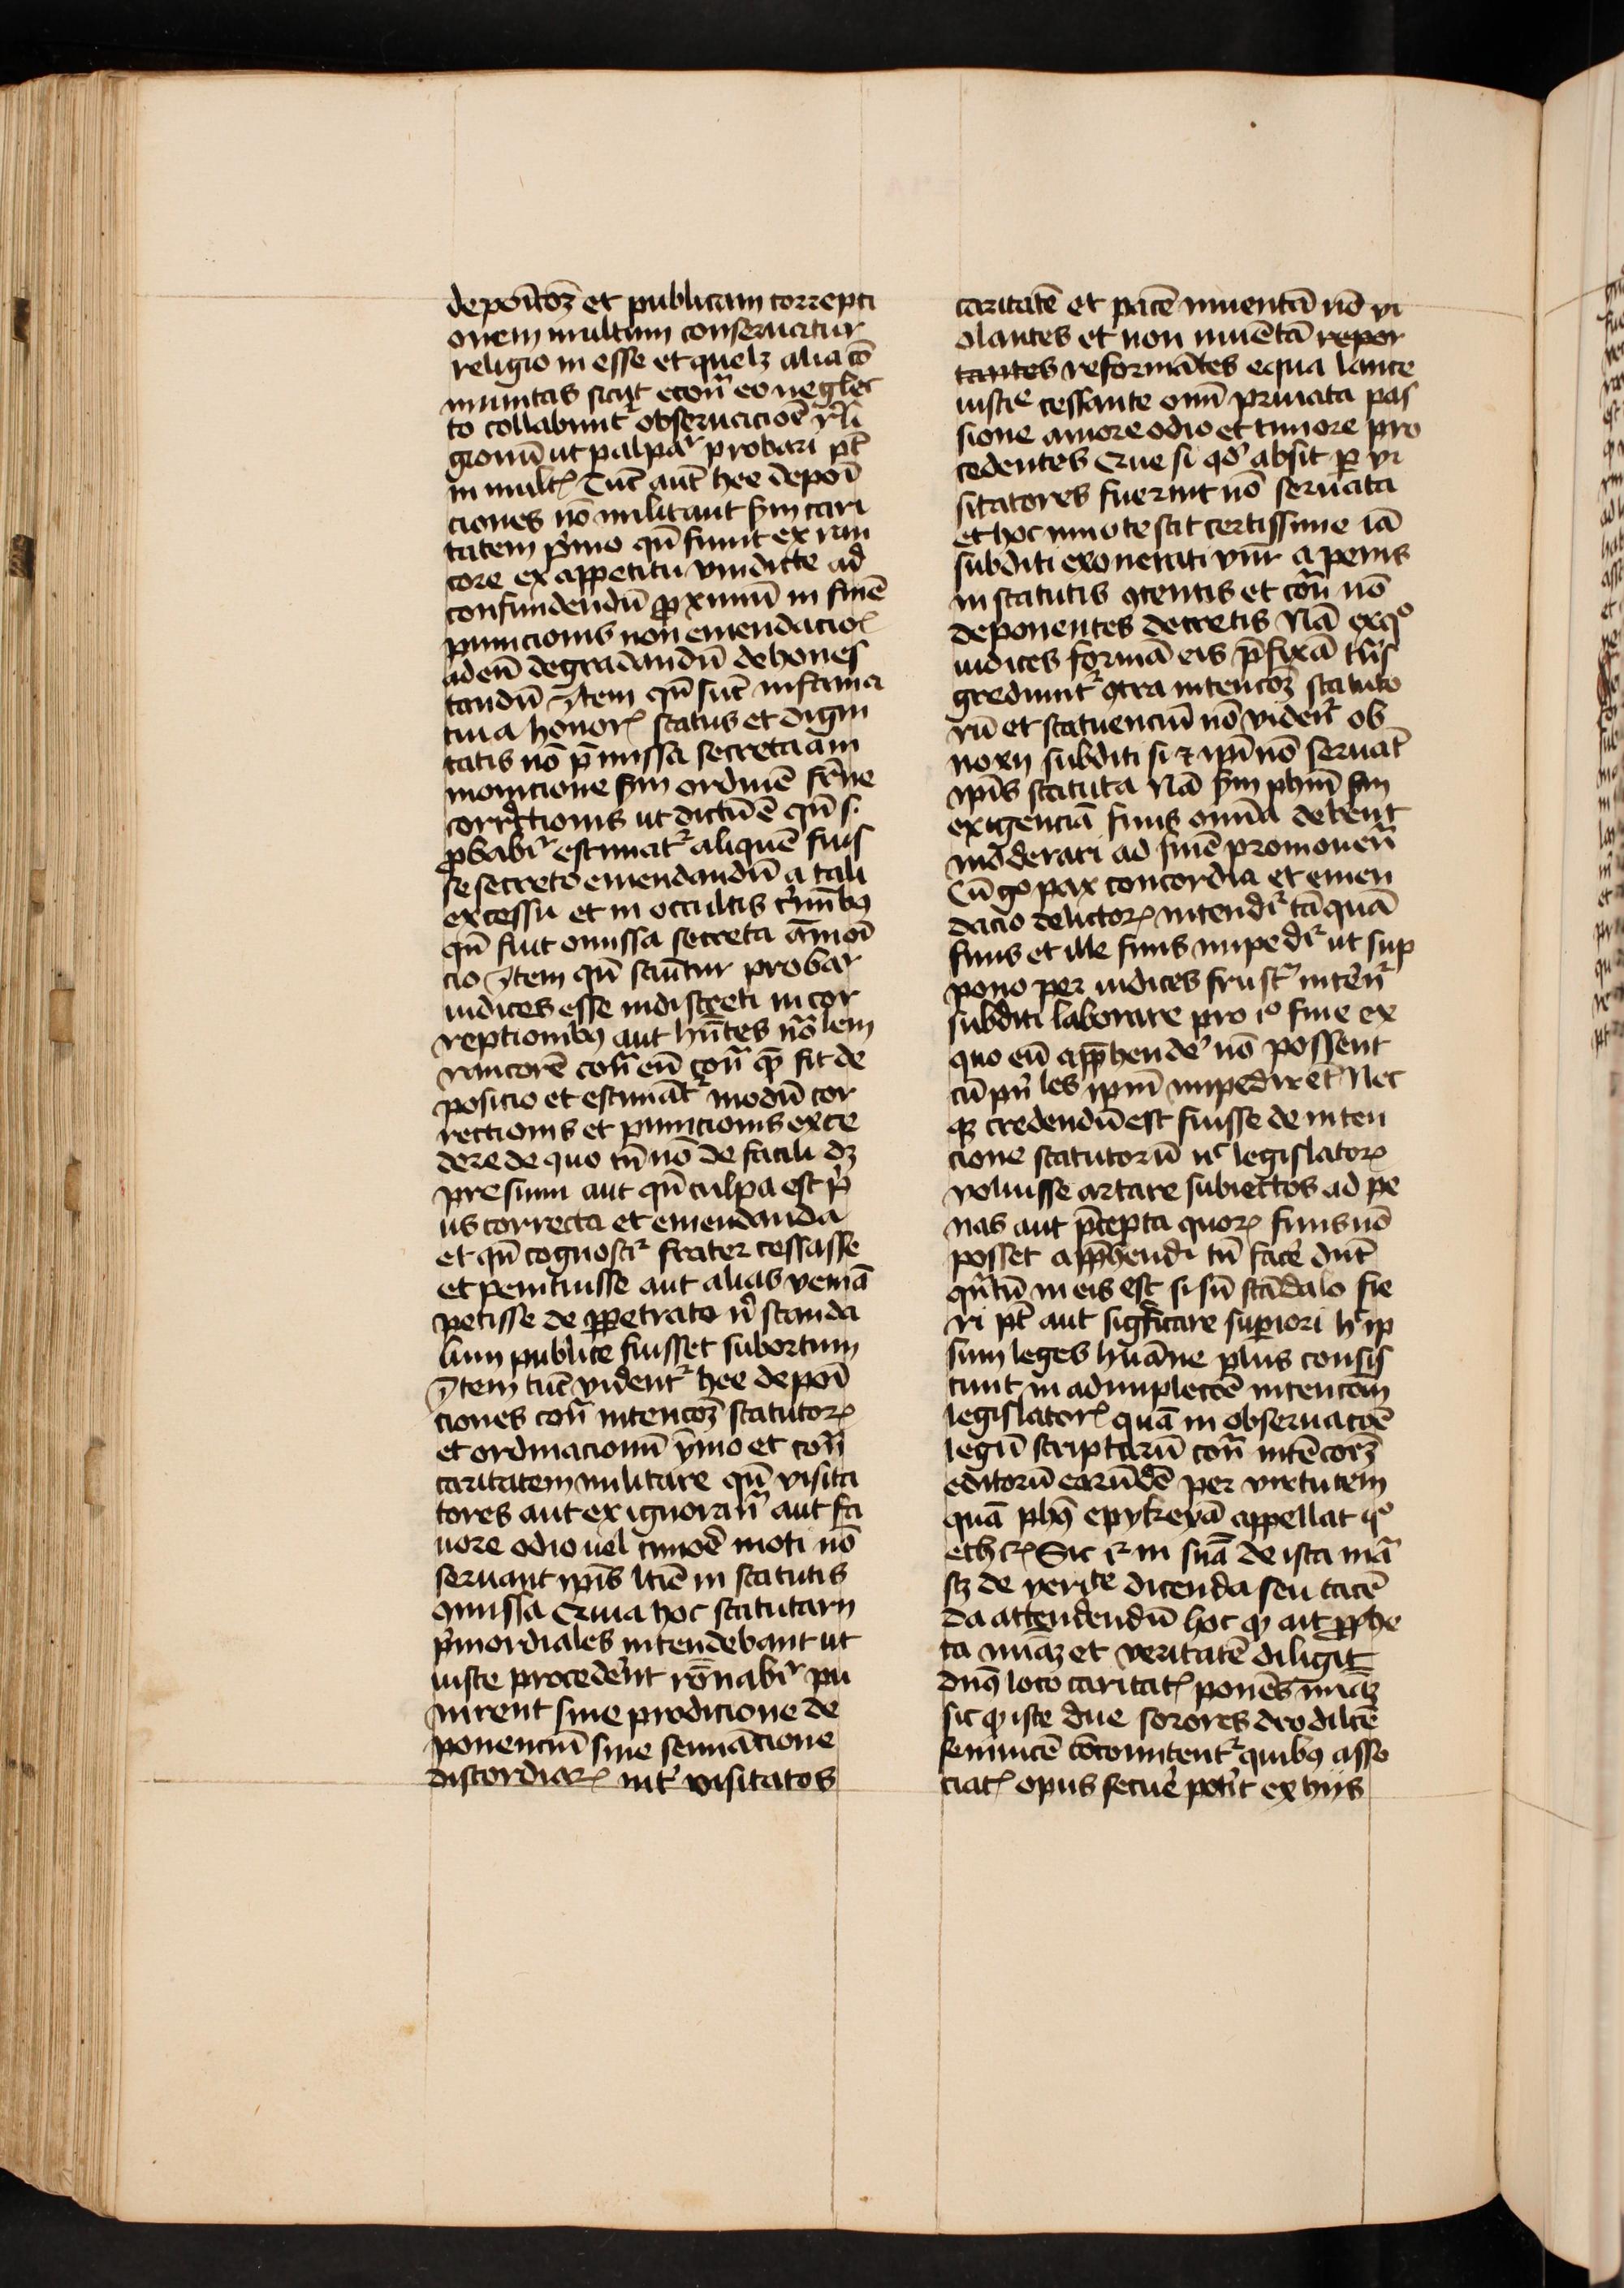 depoīcōꝫ et publicam correpti
onem multum conseruatur
religio in esse et quelꝫ alia cō
munitas sicut econ̄ eo neglec
to collabunt᷑ obseruaciōē rl̄i
gionū ut palpar᷑ probari pt̄
in multꝭ Tūc aūt hee depoī
ciones nō militant ꝯm cari
tatem p̄mo qn̄ fiunt ex ran
core ex appetitu vindicte ad
confundendū ꝓximū in finē
punicionis non emendacioꝭ
ad eū degradandū dehones
tandū Item qn̄ sūt infama
tiua honorꝭ status et digni
tatis nō p̄missa secreta am
monicione ßm ordinē fr̄ne
correctionis ut dictū ē qn̄ s.
ꝓbabir᷑ estimat᷑ aliquē fuis
se secreto emendandū a tali
excessu et in occultis cīmībꝰ
qn̄ fiut omissa secreta āmoī
cio Item qn̄ sciūtur probar᷑
iudices esse indiscreti in cor
reptionibꝰ aut hn̄tes
rancorē con̄ eū con̄ quē fit de
posicio et estimāt᷑ modū cor
rectionis et punicionis exce
dere de quo tn̄ nō de facili dꝫ
presumi aut qn̄ culpa est p̄
us correcta et emendanda
et qn̄ cognoscit᷑ frater cessasse
et penituisse aut alias veniā
petisse de ꝑpetrato n̄ scanda
lum publice fuisset subortum
Item tūc vident᷑ hee depoī
ciones con̄ intencōꝫ statutoꝝ
et ordinacionū ymo et con̄
caritatem militare qn̄ visita
tores aut ex ignoran̄ aut fa
uore odio uel timōē moti nō
seruant ip̄is l̄tiē in statutis
ꝯmissa Quia hoc statutarij
p̄mordiales intendebant ut
iuste procedēnt rōnabir᷑ pu
nirent sine prodicione de
ponenciū sine seminacione
discordiaꝝ int᷑ visitatos
caritatē et pacē inuentā nō vi
olantes et non inuētā repor
tantes reformātes equa lance
iusticᵉ cessante omī priuata pas
sione amore odio et timore pro
cedentes Que si qd᷑ absit ꝑ vi
sitatores fuerint nō seruata
et hoc innotescit certissime iā
subditi exonerati vnī a penis
in statutis ꝯtentis et con̄ nō
deponentes decretis Nā exqo
iudices formā eis p̄fixā trās
grediunt᷑ ꝯtra intencōꝫ statuto
rū et statuenciū nō videnͭ ob
noxij subditi si ⁊ ip̄i nō seruāt
ip̄is statuta Nā ßm phm̄ ßm
exigenciā finis omīa debent
moderari ad finē promouen̄
Cū gͦ pax concordia et emen
dacio delictoꝝ intendit᷑ tāquā
finis et ille finis impedit᷑ ut sup
pono per iudices frustr᷑ inten᷑
subditi laborare pro ioͦ fine ex
quo eū app̄hendē nō possent
cū pn̄les ip̄m impedirēt Nec
qꝫ credendū est fuisse de inten
cione statutorū nͨ legislatoꝝ
voluisse artare subiectos ad pe
nas aut p̄cepta quoꝝ finis nō
posset app̄hendi tn̄ facē dn̄t
qn̄tū in eis est si sn̄ scādalo fie
ri pt̄ aut sigᷓficare superiori hͨ ip
sum leges humāne plus consis
tunt in adimplecōē intencōīs
legislatorꝭ quā in obseruacōē
legū scriptarū con̄ intēcōꝫ
editorū earūdē per virtutem
quā phs̄ epykeyā appellat qͦ
ethicꝭ Sic ⁊ in sūa de ista mā
sꝫ de veritᵉ dicenda seu tacē
da attendendū hoc qꝫ ait ꝓphe
ta mīaꝫ et veritatē diligit
dn̄s loco caritatꝭ ponēs mīaꝫ
sic qꝫ iste due sorores deo dilcē
se inuicē cōcomitent᷑ quibꝰ asso
ciatꝭ opus secuē potit ex hijs